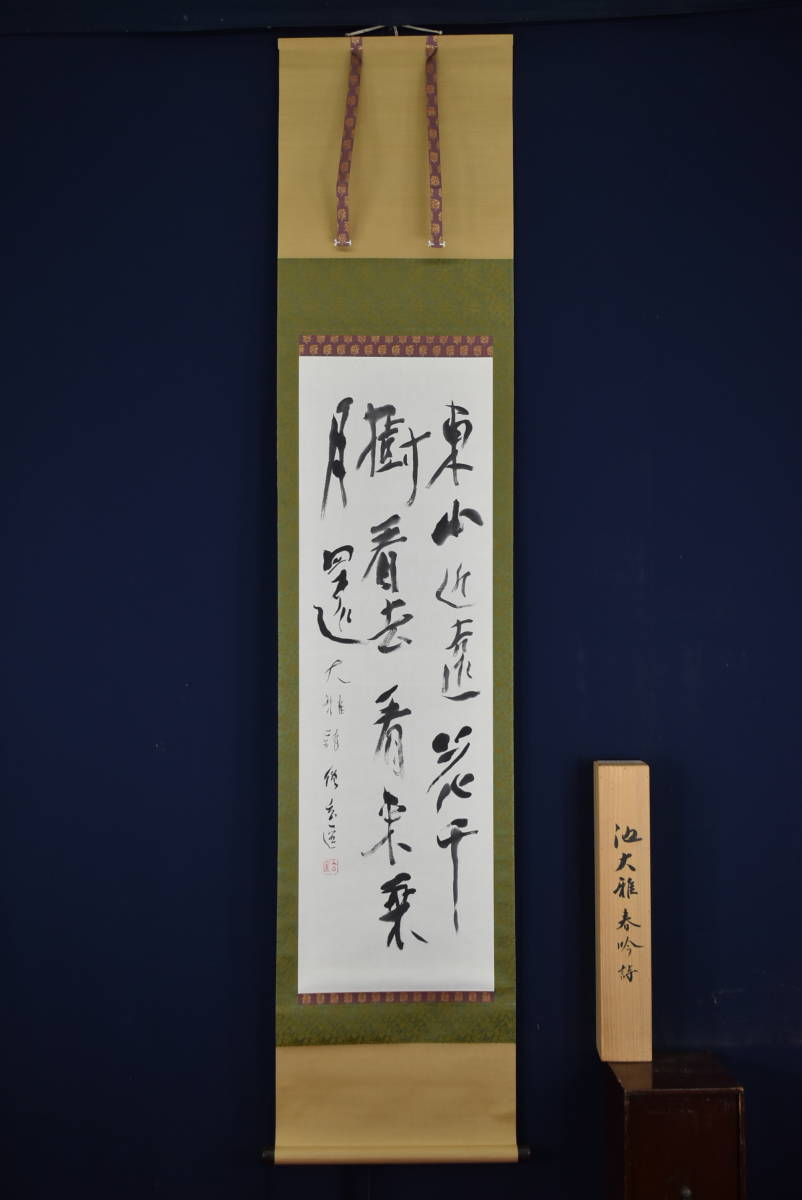 東山近遠花千
樹看去看来乗
月還大雅詩
池大雅春吟詩